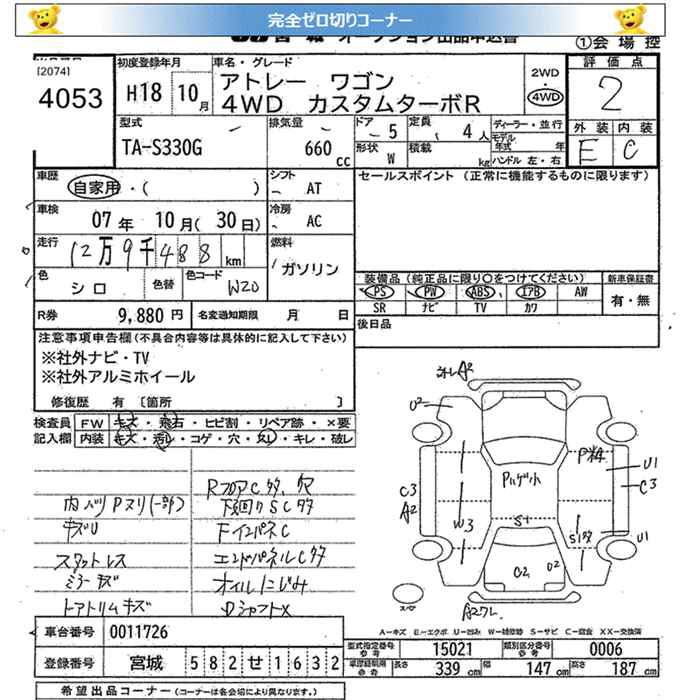 完全ゼロ切りコーナー
宮城 オークション出品申込書
①会場控
[2074]
4053
初度登録年月
H18 10月
車名・グレード
アトレー ワゴン
4WD カスタムターボR
2WD
4WD
評価点
2
外装 内装
E C
型式
TA-S330G
排気量
660 cc
ドア 5
定員 4人
形状 W
積載 kg
ディーラー・並行
モデル年式 年
ハンドル 左・右
車歴
自家用・( )
シフト AT
セールスポイント (正常に機能するものに限ります)
車検
07年 10月(30日)
冷房 AC
走行
12万9千488km
燃料
ガソリン
色
シロ
色替
色コード W20
装備品 (純正品に限り○をつけてください)
新車保証書
PS PW ABS エアB AW
SR ナビ TV カワ
有・無
R券 9,880円
名変通知期限 月 日
後日品
注意事項申告欄(不具合内容等は具体的に記入して下さい)
※社外ナビ・TV
※社外アルミホイール
修復歴 有 [箇所 ]
検査員記入欄
FW キズ・飛石・ヒビ割・リペア跡・×要
内装 キズ・汚レ・コゲ・穴・欠レ・キレ・破レ
RフロアCタタ、穴
内ハツリPヌリ(一部)
下廻りSCタタ
キズU
FインパネC
スタットレス
エンドパネルCタタ
ミラーキズ
オイルにじみ
トアトリムキズ
Dシャフト×
A2
U2
Pハゲ小
P粋
U1
C3
C3
A2
W3
S1
U1
C2
U2
スペア
A-キズ E-エクボ U-凹み W-補修跡 S-サビ C-腐食 XX-交換済
車台番号 0011726
登録番号 宮城 582せ1632
型式指定番号 参考 15021
類別区分番号 参考 0006
参考 長さ 339cm 幅 147cm 高さ 187cm
希望出品コーナー(コーナーは各会場により異なります。)